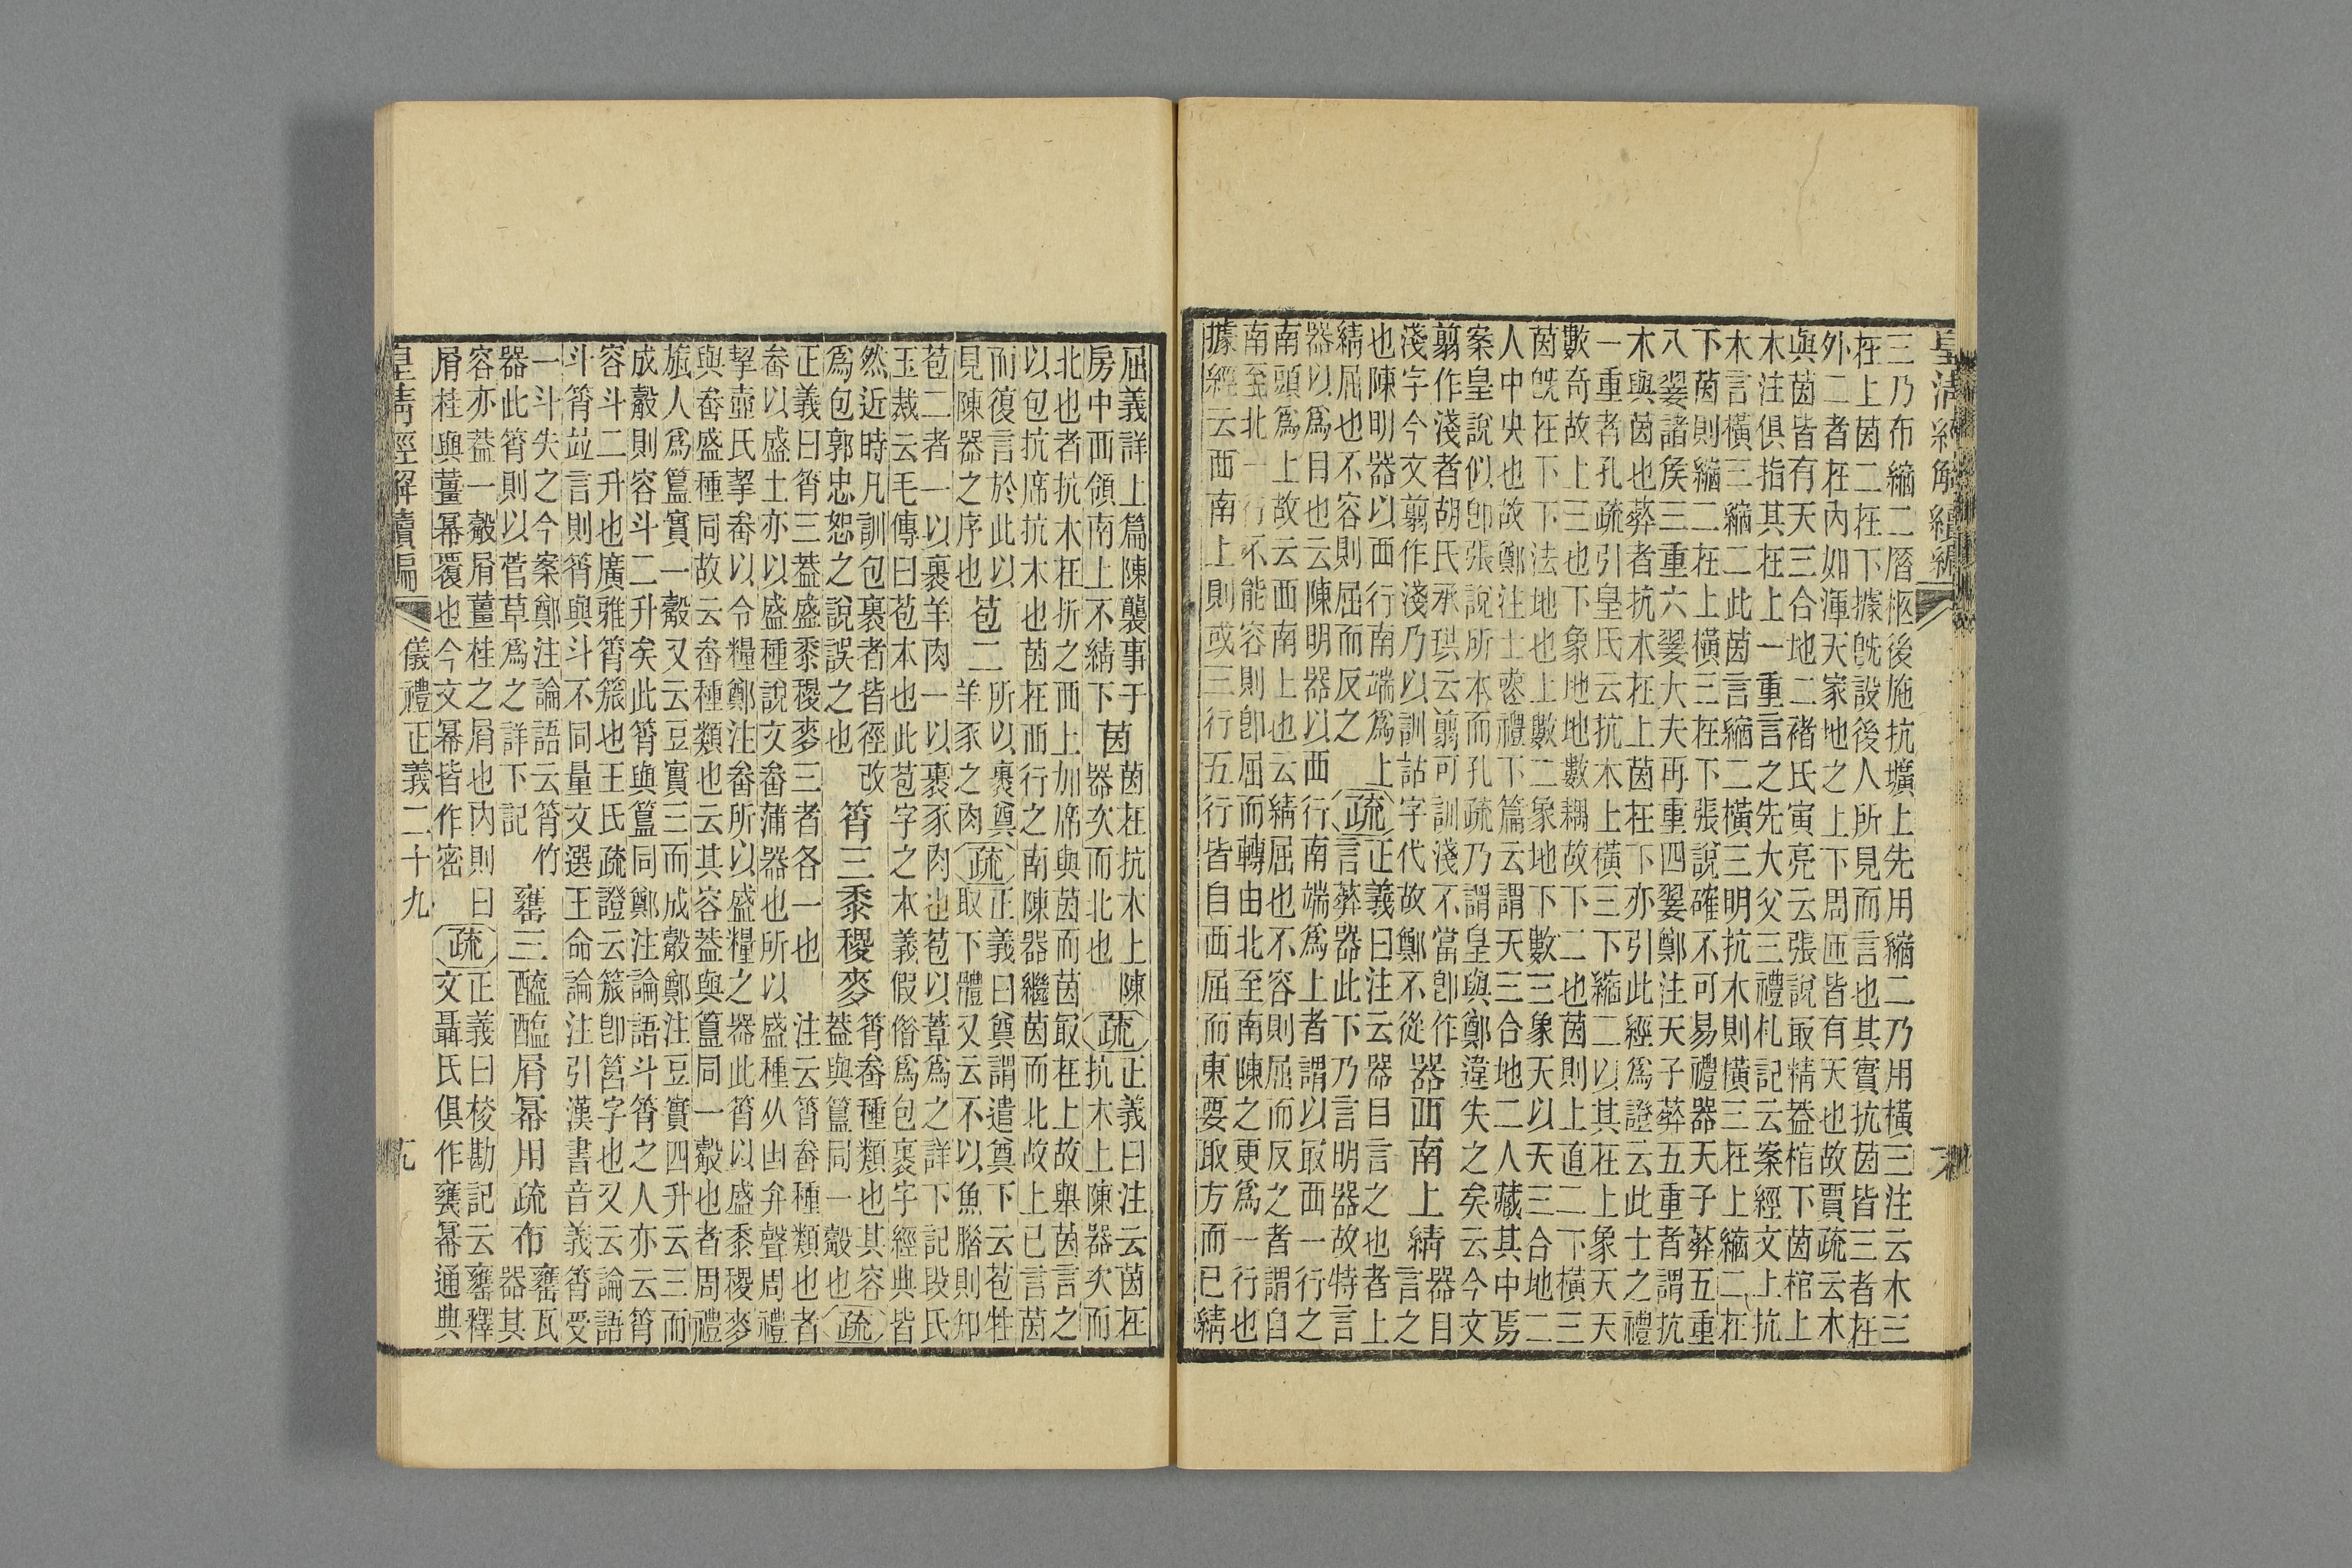 皇清經解續編
三乃布縮二厝柩後施抗壙上先用縮二乃用橫三注云木三
在上茵二在下據旣設後人所見而言也其實抗茵皆三者在
外二者在內如渾天家地之上下周匝皆有天也故賈疏云木
與茵皆有天三合地二褚氏寅亮云張說最精蓋棺下茵棺上
木注俱指其在上一重言之先大父三禮札記云案經文上抗
木言橫三縮二此茵言縮二橫三明抗木則橫三在上縮二在
下茵則縮二在上橫三在下張說確不可易禮器天子葬五重
八翣諸侯三重六翣大夫再重四翣鄭注天子葬五重者謂抗
木與茵也葬者抗木在上茵在下亦引此經爲證云此士之禮
一重者孔疏引皇氏云抗木上橫三下縮二以其在上象天天
數奇故上三也下象地地數耦故下二也茵則上直二下橫三
茵旣在下下法地也上數二象地下數三象天以天三合地二
人中央也故鄭注士喪禮下篇云謂天三合地二人藏其中焉
案皇說似卽張說所本而孔疏乃謂皇與鄭違失之矣云今文
翦作淺者胡氏承珙云翦可訓淺不當卽作
淺字今文翦作淺乃以訓詁字代故鄭不從
器西南上綪
器目
言之
也陳明器以西行南端爲上
綪屈也不容則屈而反之
疏
正義曰注云器目言之也者上
言葬器此下乃言明器故特言
器以爲目也云陳明器以西行南端爲上者謂以最西一行之
南頭爲上故云西南上也云綪屈也不容則屈而反之者謂自
南至北一行不能容則卽屈而轉由北至南陳之更爲一行也
據經云西南上則或三行五行皆自西屈而東要取方而已綪
屈義詳上篇陳襲事于
房中西領南上不綪下
茵
茵在抗木上陳
器次而北也
疏
正義曰注云茵在
抗木上陳器次而
北也者抗木在折之西上加席與茵而茵最在上故舉茵言之
以包抗席抗木也茵在西行之南陳器繼茵而北故上已言茵
而復言於此以
見陳器之序也
苞二
所以裹奠
羊豕之肉
疏
正義曰奠謂遣奠下云苞牲
取下體又云不以魚腊則知
苞二者一以裹羊肉一以裹豕肉也苞以葦爲之詳下記段氏
玉裁云毛傳曰苞本也此苞字之本義假俗爲包裹字經典皆
然近時凡訓包裹者皆徑改
爲包郭忠恕之說誤之也
筲三黍稷麥
筲畚種類也其容
蓋與簋同一觳也
疏
正義曰筲三蓋盛黍稷麥三者各一也 注云筲畚種類也者
畚以盛土亦以盛種說文畚蒲器也所以盛種从甾弁聲周禮
挈壺氏挈畚以令糧鄭注畚所以盛糧之器此筲以盛黍稷麥
與畚盛種同故云畚種類也云其容蓋與簋同一觳也者周禮
旊人爲簋實一觳又云豆實三而成觳鄭注豆實四升云三而
成觳則容斗二升矣此筲與簋同鄭注論語斗筲之人亦云筲
容斗二升也廣雅筲簇也王氏疏證云簇卽筥字也又云論語
斗筲竝言則筲與斗不同量文選王命論注引漢書音義筲受
一斗失之今案鄭注論語云筲竹
器此筲則以菅草爲之詳下記
甕三醯醢屑冪用疏布
甕瓦
器其
容亦蓋一觳屑薑桂之屑也內則曰
屑桂與薑冪覆也今文冪皆作密
疏
正義曰校勘記云甕釋
文聶氏俱作冪通典
皇清經解續編
儀禮正義二十九